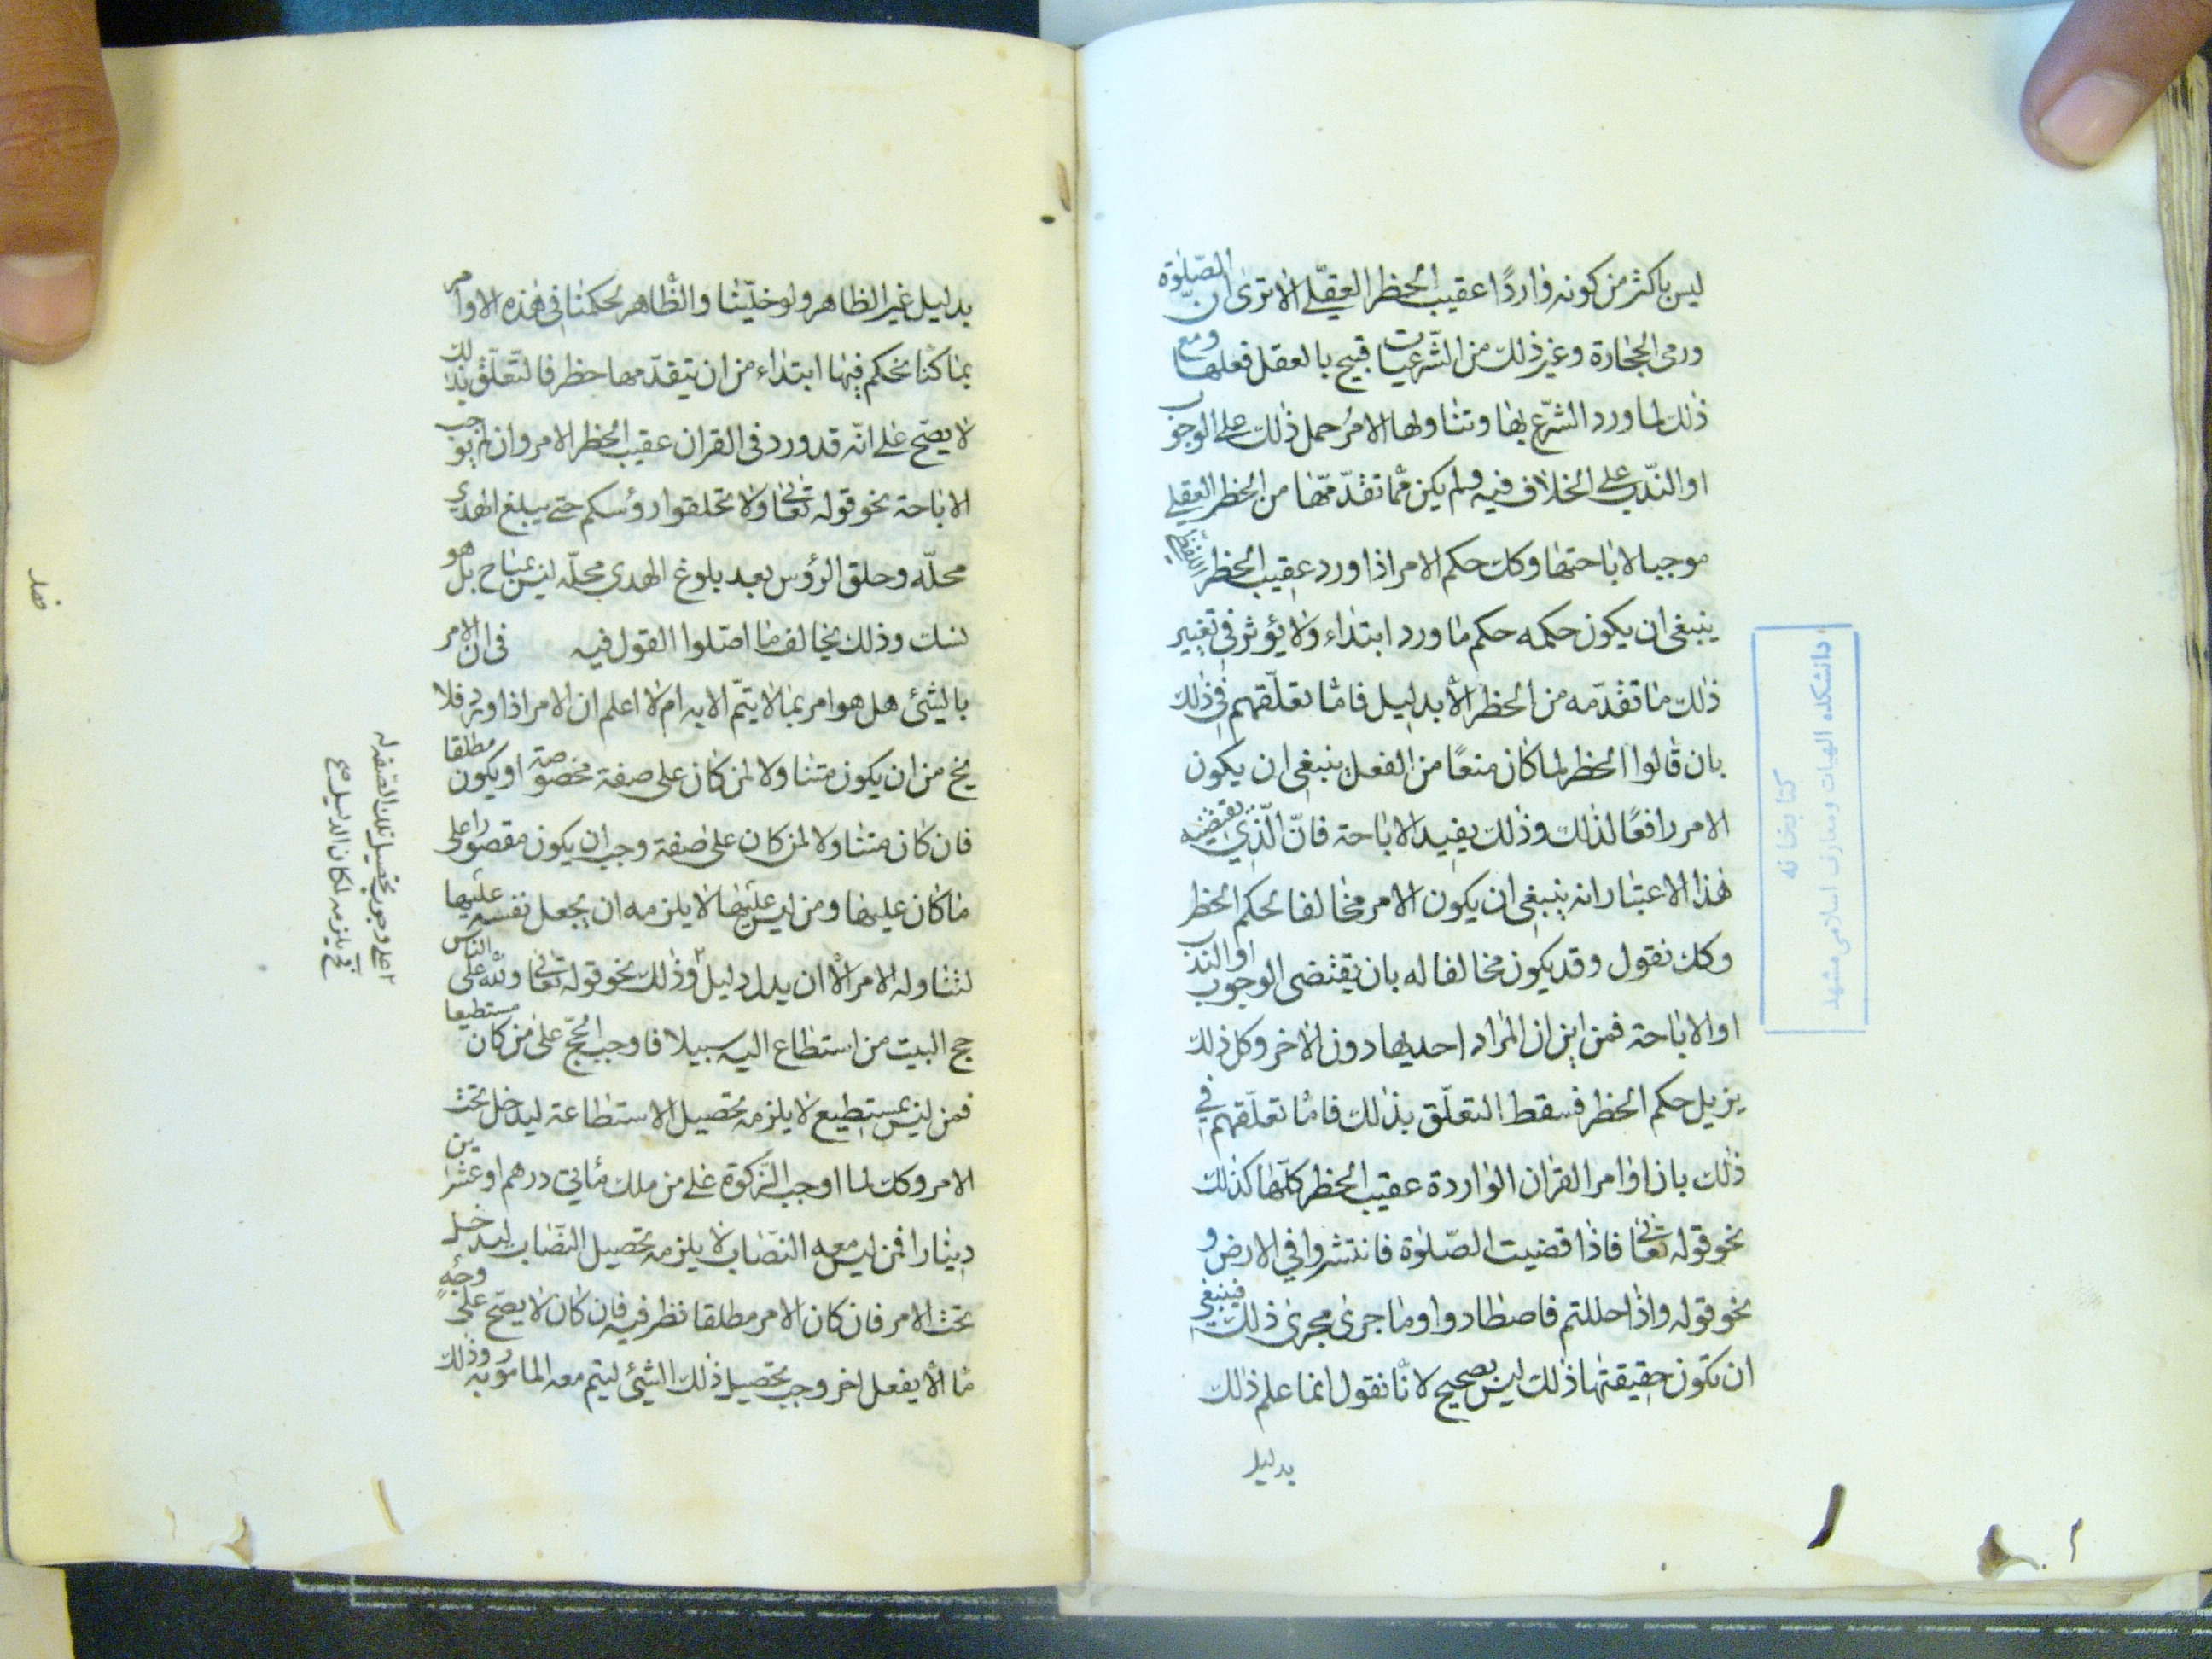 ليس باكثر من كونه واردًا عقيب الحظر العقلي الا ترى ان الصّلوة
ورمى الجمارة وغير ذلك من الشّرعيات قبيح بالعقل فعلها ومع
ذلك لما ورد الشّرع بها وتناولها الامر حمل ذلك على الوجوب
او النّدب على الخلاف فيه ولم يكن ممّا تقدّمها من الحظر العقلي
موجبا لاباحتها وكك حكم الامر اذا ورد عقيب الحظر اللفظي
ينبغى ان يكون حكمه حكم ما ورد ابتداء ولا يؤثر في تغيير
ذلك ما تقدّمه من الحظر الّا بدليل فامّا تعلّقهم في ذلك
بان قالوا الحظر لما كان منعًا من الفعل ينبغى ان يكون
الامر رافعًا لذلك وذلك يفيد الاباحة فانّ الّذي يقتضيه
هذا الاعتبار انه ينبغى ان يكون الامر مخالفا لحكم الحظر
وكك نقول وقد يكون مخالفا له بان يقتضى الوجوب او الندب
او الاباحة فمن اين ان المراد احديها دون الاخر وكل ذلك
يزيل حكم الحظر فسقط التعلّق بذلك فامّا تعلّقهم في
ذلك بان اوامر القران الواردة عقيب الحظر كلّها كذلك
نحو قوله تعالى فاذا قضيت الصّلوة فانتشروا في الارض و
نحو قوله واذا حللتم فاصطادوا وما جرى مجرى ذلك فينبغي
ان تكون حقيقتها ذلك ليس بصحيح لانّا نقول انما علم ذلك
بدليل
دانشكده الهيات ومعارف اسلامى مشهد
كتابخانه
بدليل غير الظاهر ولو خلّينا والظّاهر لحكمنا في هذه الاوامر
بما كنّا نحكم فيها ابتداء من ان يتقدّمها حظر فالتّعلّق بذلك
لا يصحّ على انّه قد ورد في القران عقيب الحظر الامر وان لم يوجب
الاباحة نحو قوله تعالى ولا تحلقوا رؤسكم حتى يبلغ الهدي
محلّه وحلق الرؤس بعد بلوغ الهدى محلّه ليس بمباح بل هو
نسك وذلك يخالف ما اصّلوا القول فيه في ان الامر
بالشئ هل هو امر بما لا يتمّ الا به ام لا اعلم ان الامر اذا ورد فلا
يخ من ان يكون متناولا لمن كان على صفة مخصوصة او يكون مطلقا
فان كان متناولا لمن كان على صفة وجب ان يكون مقصورا على
ما كان عليها ومن ليس عليها لا يلزمه ان يجعل نفسه عليها
لتناوله الامر الّا ان يدل دليل وذلك نحو قوله تعالى ولله على الناس
حج البيت من استطاع اليه سبيلا فاوجب الحجّ على من كان مستطيعا
فمن ليس بمستطيع لا يلزمه تحصيل الاستطاعة ليدخل تحت
الامر وكك لما اوجب الزّكوة على من ملك مأتي درهم او عشرين
دينارا فمن ليس معه النّصاب لا يلزمه تحصيل النّصاب ليدخل
تحت الامر فان كان الامر مطلقا نظر فيه فان كان لا يصّح على وجهٍ
مّا الّا بفعل اخر وجب تحصيل ذلك الشئ ليتم معه المامور به وذلك
على وجوب تحصيل تلك الصفة له
فح يلزمه لمكان الدليل صح
فصل